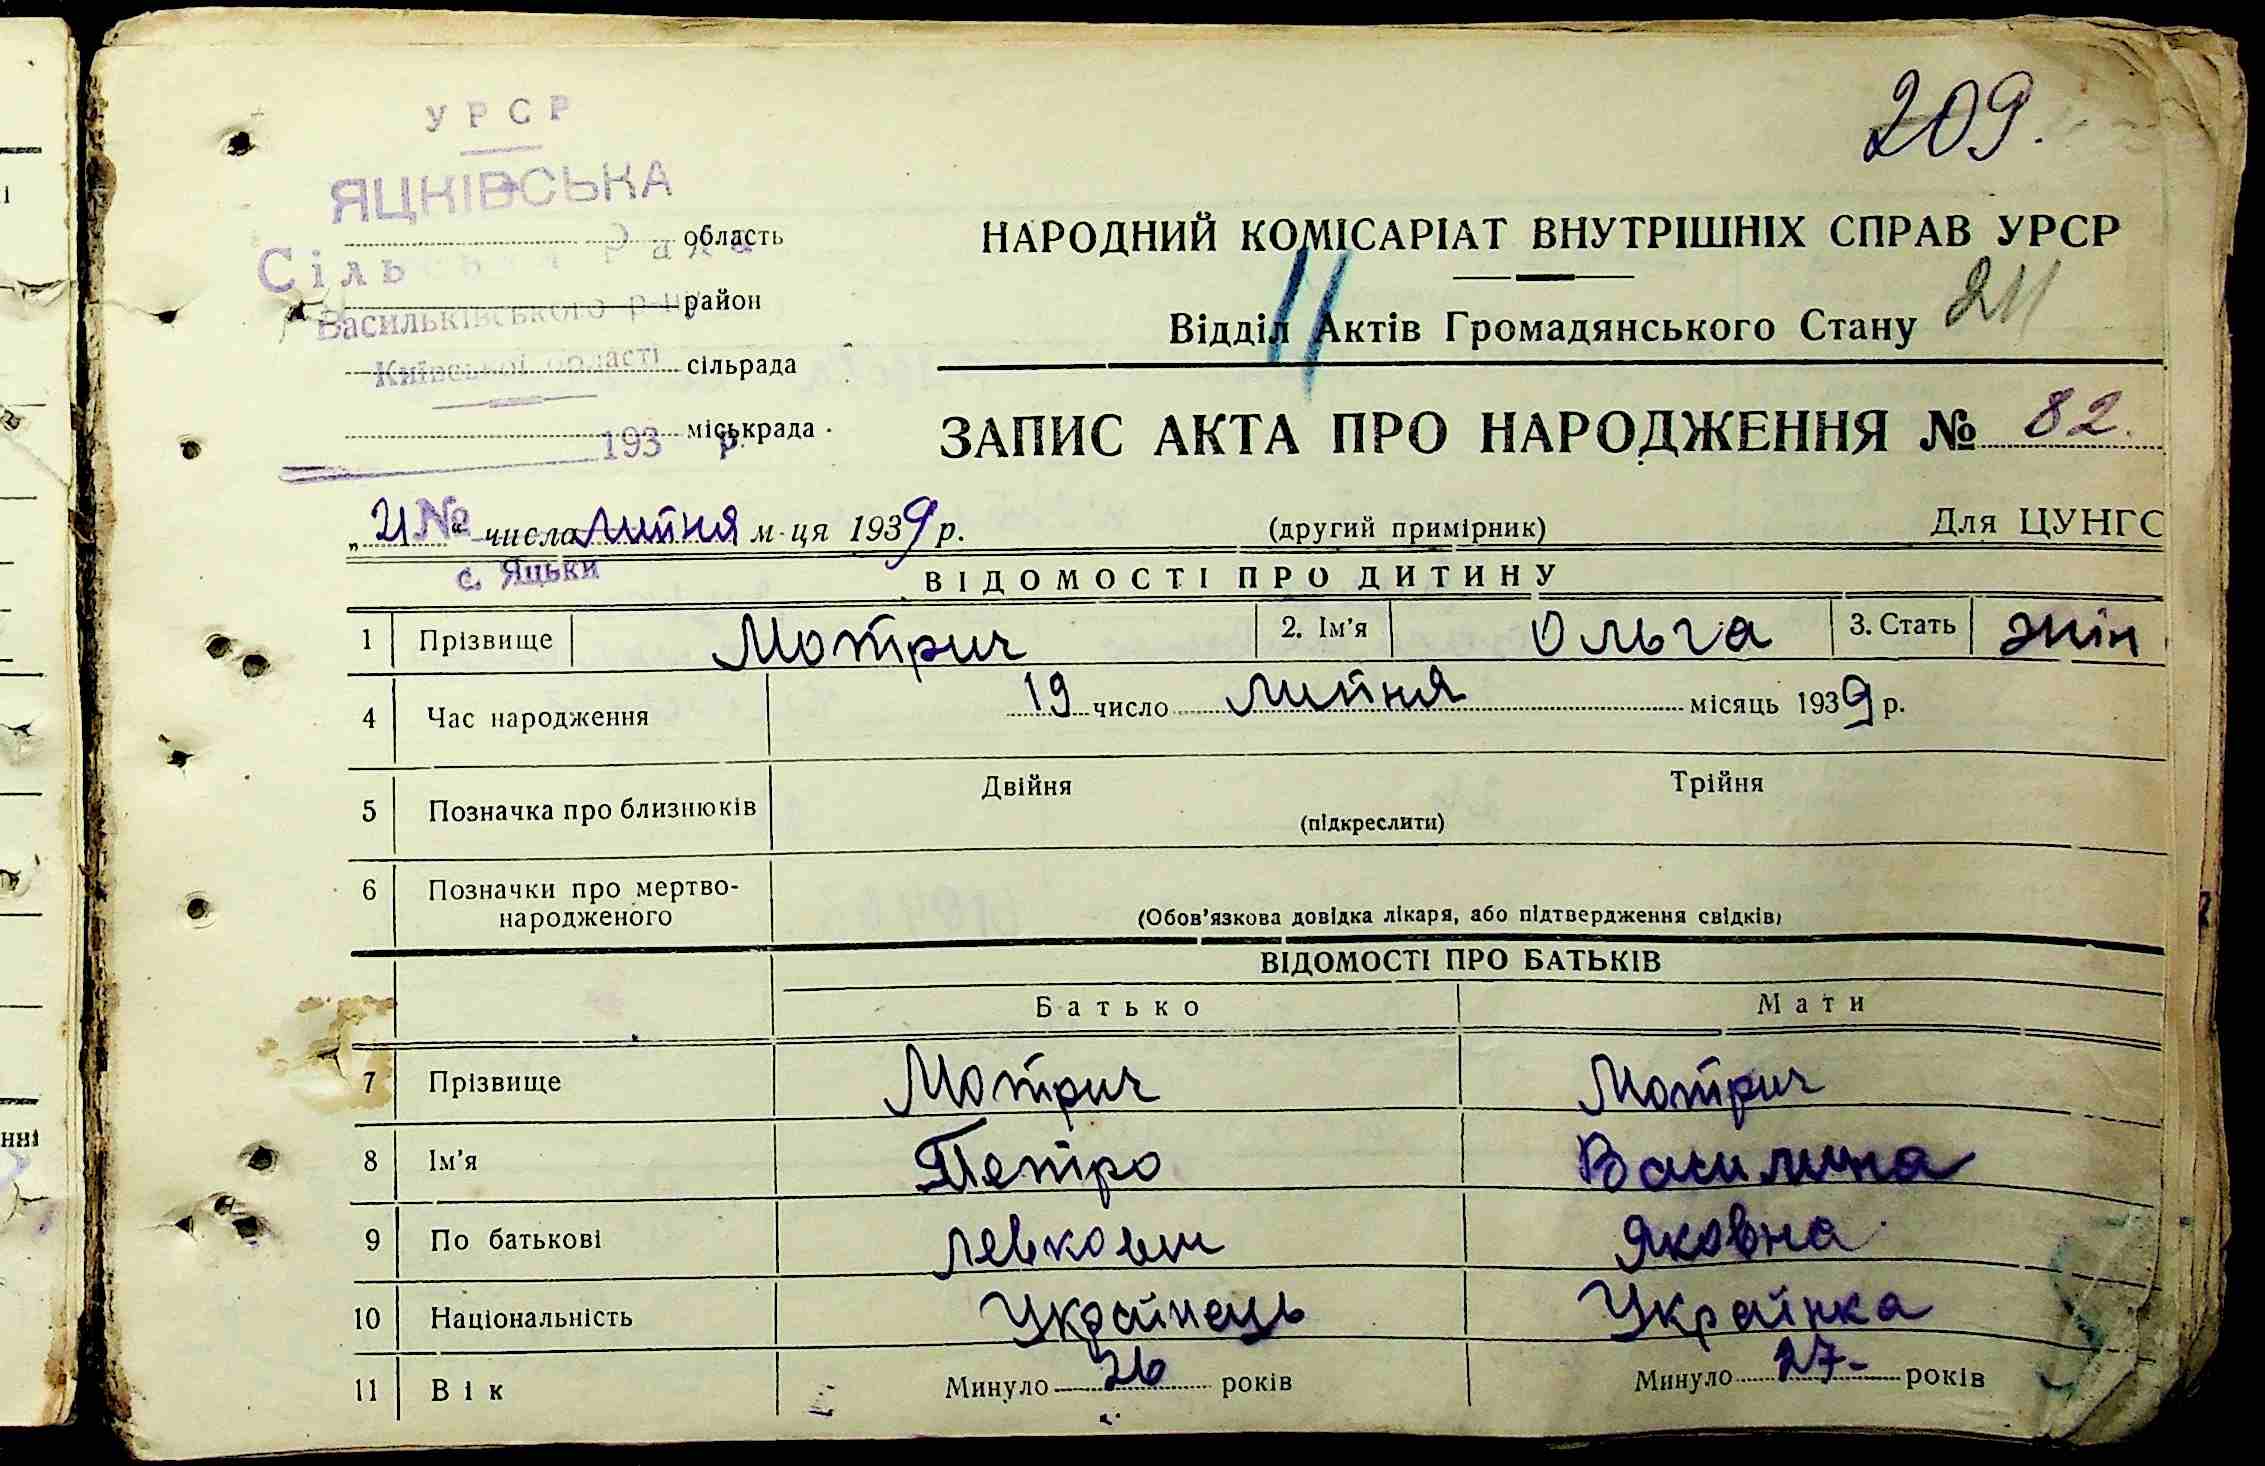 209.
УРСР
ЯЦКІВСЬКА
область
Сільська Рада
район
Васильківського р-ну
Київської області сільрада
міськрада
193 р.
НАРОДНИЙ КОМІСАРІАТ ВНУТРІШНІХ СПРАВ УРСР
Відділ Актів Громадянського Стану 211
ЗАПИС АКТА ПРО НАРОДЖЕННЯ № 82.
„21“ № числа липня м-ця 1939 р. (другий примірник) Для ЦУНГС
с. Яцьки
ВІДОМОСТІ ПРО ДИТИНУ
1 Прізвище Мотрич 2. Ім'я Ольга 3. Стать жін
4 Час народження 19 число липня місяць 1939 р.
5 Позначка про близнюків Двійня Трійня
(підкреслити)
6 Позначки про мертво-
народженого (Обов'язкова довідка лікаря, або підтвердження свідків)
ВІДОМОСТІ ПРО БАТЬКІВ
Батько Мати
7 Прізвище Мотрич Мотрич
8 Ім'я Петро Василина
9 По батькові Яковна
10 Національність Українець Українка
11 Вік Минуло 26 років Минуло 27- років
нні